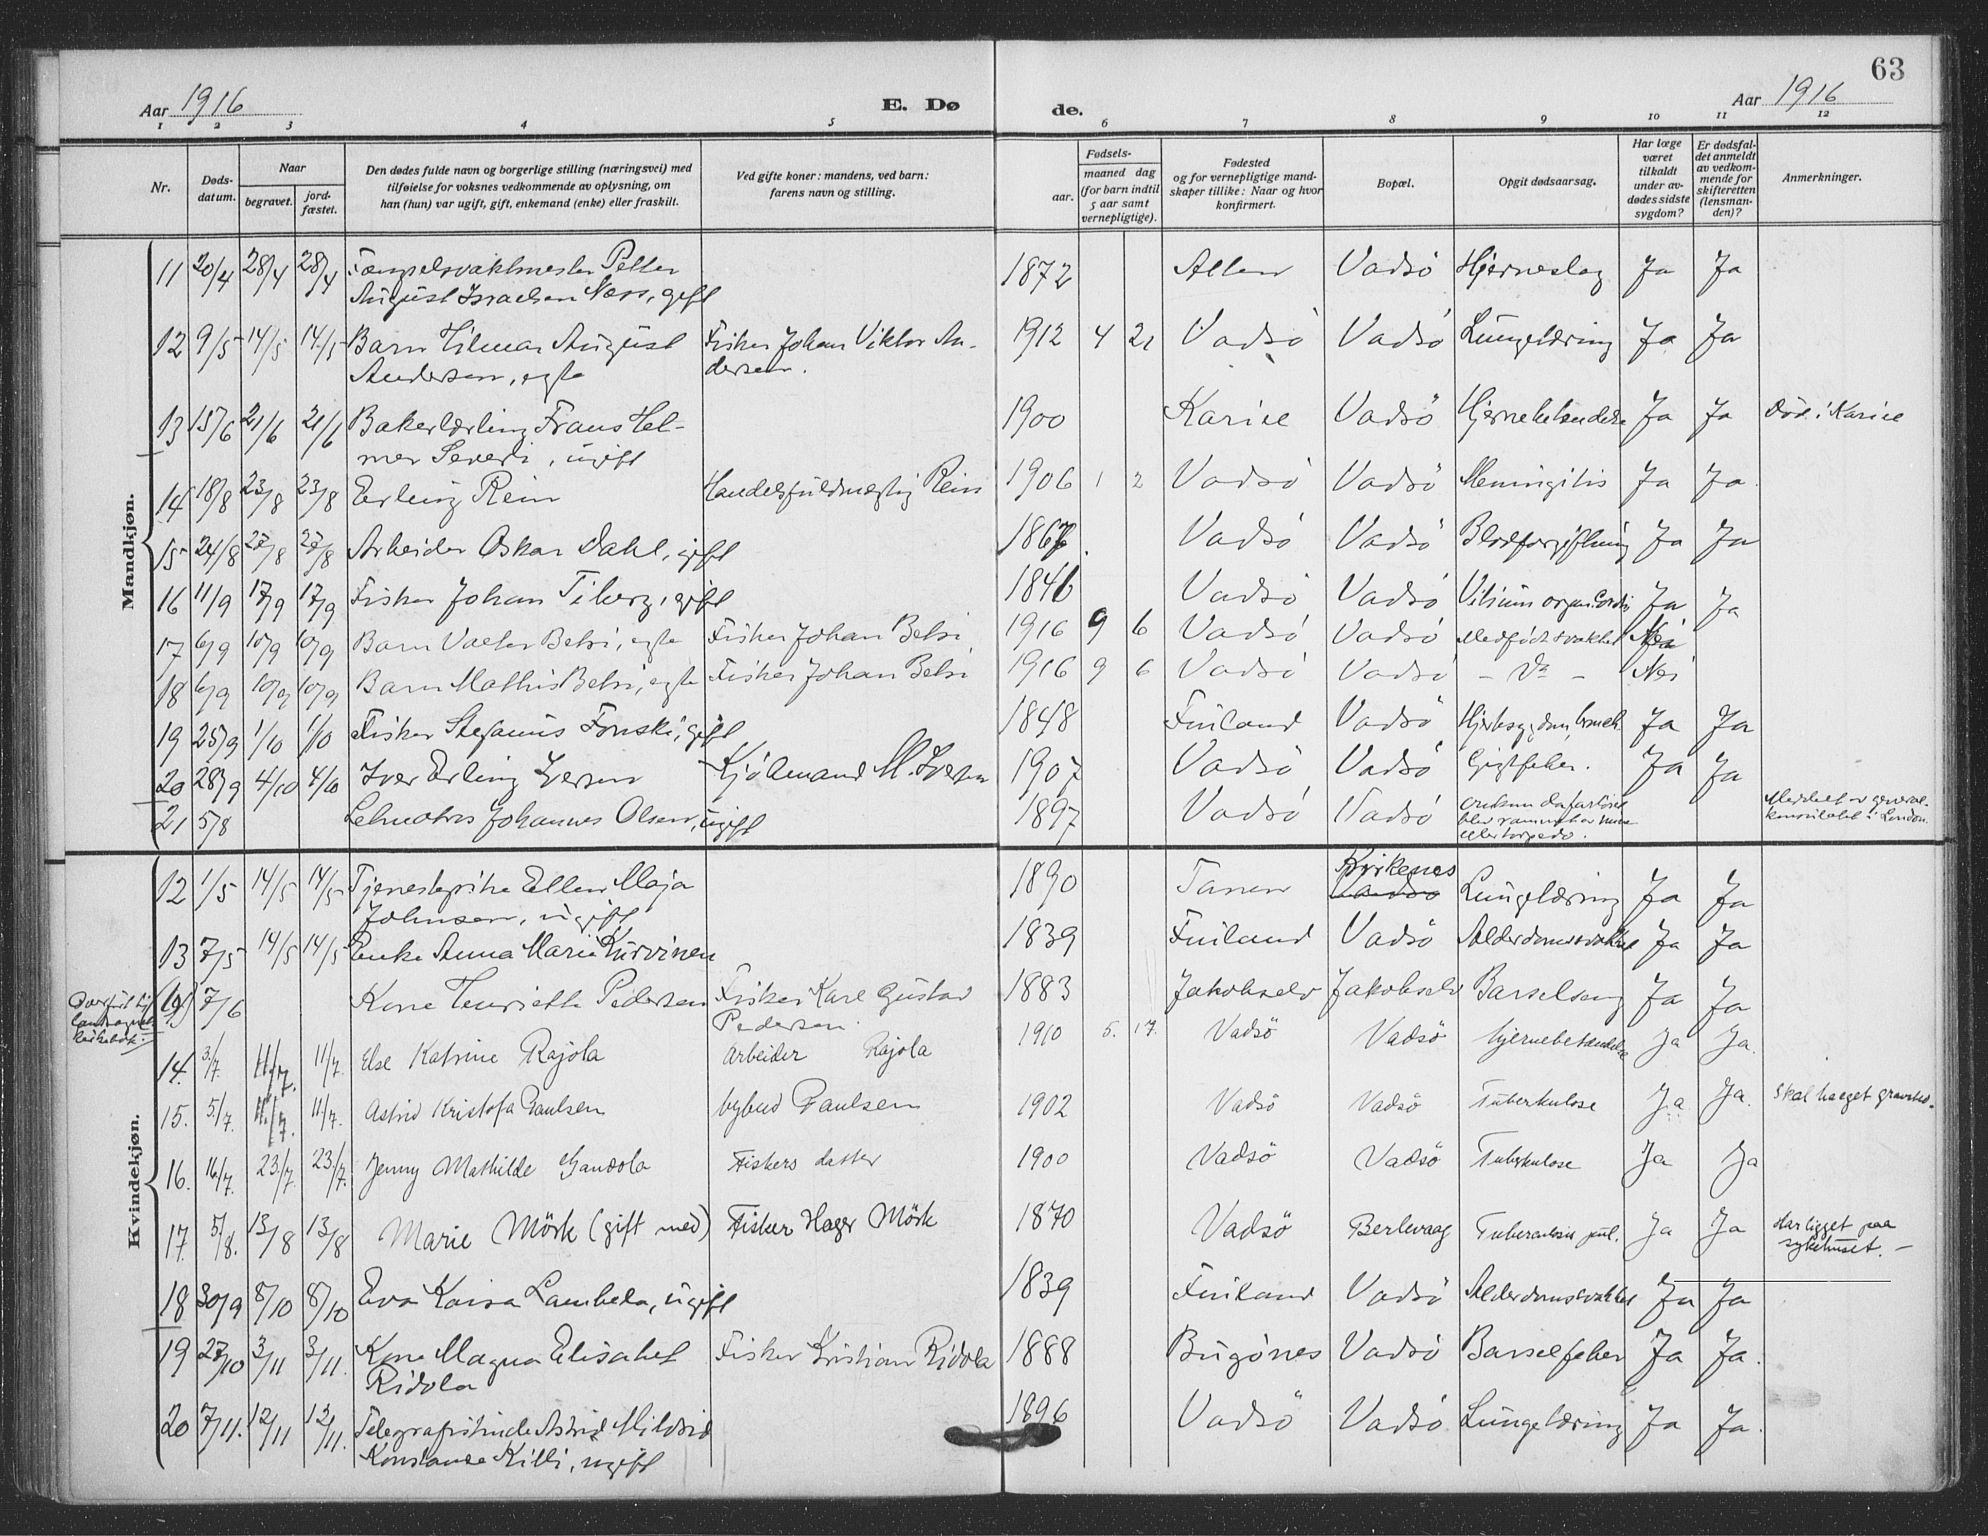 63
Aar 1916 E. Dø de. Aar 1916
1 2 3 4 5 6 7 8 9 10 11 12
Nr. Døds-datum. Naar begravet. jord-fæstet. Den dødes fulde navn og borgerlige stilling (næringsvei) med tilføielse for voksnes vedkommende av oplysning, om han (hun) var ugift, gift, enkemand (enke) eller fraskilt. Ved gifte koner: mandens, ved barn: farens navn og stilling. Fødsels- aar. maaned dag (for barn indtil 5 aar samt vernepligtige). Fødested og for vernepligtige mand-skaper tillike: Naar og hvor konfirmert. Bopæl. Opgit dødsaarsag. Har læge været tilkaldt under av-dødes sidste sygdom? Er dødsfal-det anmeldt av vedkom-mende for skifteretten (lensman-den)? Anmerkninger.
Mandkjøn.
11 20/4 28/4 28/4 Fængselsvaktmester Petter 1872 Alten Vadsö Hjerneslag Ja Ja
August Israelsen Næss, gift
12 9/5 14/5 14/5 Barn Hilmar August Fisker Johan Viktor An- 1912 4 21 Vadsö Vadsö Lungetæring Ja Ja
Andersen, egte dersen.
13 15/6 21/6 21/6 Bakerlærling Frans Hel- 1900 Karise Vadsö Hjernebetændelse Ja Ja Död i Karise
mer Severi, ugift
14 18/8 23/8 23/8 Erling Rein Handelsfuldmægtig Rein 1906 1 2 Vadsö Vadsö Meningitis Ja Ja.
15 24/8 27/8 27/8 Arbeider Oskar Dahl, gift Vadsö Vadsö Blodforgiftning Ja Ja
16 11/9 17/9 17/9 Fisker Johan Tiberg, gift 1846 Vadsö Vadsö Vitium organ. Cordis Ja Ja
17 6/9 10/9 10/9 Barn Valter Betsi, egte Fisker Johan Betsi 1916 9 6 Vadsö Vadsö Medfödt svakhet Nei
18 6/9 10/9 10/9 Barn Mathis Betsi, egte Fisker Johan Betsi 1916 9 6 Vadsö Vadsö - Do - Nei
19 25/9 1/10 1/10 Fisker Stefanus Fonski, gift 1848 Finland Vadsö Hjertesygdom, Ja Ja
20 28/9 4/10 4/10 Iver Erling Iversen Kjöbmand M. Iversen 1907 Vadsö Vadsö Gigtfeber. Ja Ja
21 5/8 Letmatros Johannes Olsen, ugift 1897 Vadsö Vadsö
blev rammet av mine Meddelt av general-
eller torpedo. konsulatet i London.
Kvindekjøn.
12 1/5 14/5 14/5 Tjenestepike Ellen Maja 1890 Tanen Kirkenes Lungetæring Ja Ja
Johnsen, ugift
13 7/5 14/5 14/5 Enke Anna Marie Kurvinen 1839 Finland Vadsö Alderdomssvakhet Ja Ja
Overfört til landsognets kirkebok. 7/6 Kone Henriette Pedersen Fisker Karl Gustav 1883 Jakobselv Jakobselv Barselseng Ja Ja
Pedersen.
14. 3/7. 11/7. 11/7. Else Katrine Rajola Arbeider Rajola 1910 5. 17. Vadsö Vadsö hjernebetændelse Ja Ja.
15. 5/7. 11/7. 11/7. Astrid Kristofa Paulsen bybud Paulsen 1902 Vadsö Vadsö Tuberkulose Ja Ja. Skal ha eget gravsted.
16. 16/7. 23/7. 23/7. Jenny Mathilde Gandola Fiskers datter 1900 Vadsö Vadsö Tuberkulose Ja Ja
17. 5/8. 13/8 13/8 Marie Mörk (gift med) Fisker Hager Mörk 1870 Vadsö Berlevaag Tuberculosis pul. Ja Ja Har ligget paa
sykehuset. -
18 30/9 8/10 8/10 Eva Kaisa Lambela, ugift 1839 Finland Vadsö Alderdomssvakhet Ja Ja
19 27/10 3/11 3/11. Kone Magna Elisabet Fisker Kristian Ridola 1888 Bugönes Vadsö Barselfeber Ja Ja.
Ridola
20 7/11. 12/11 12/11. Telegrafistinde Astrid Mildrid 1896 Vadsö Vadsö Lungetæring Ja Ja.
Konstanse Killi, ugift